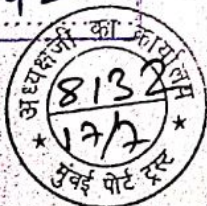 अध्यक्षजी का कार्यालय
8132
17/7
★ मुंबई पोर्ट ट्रस्ट ★